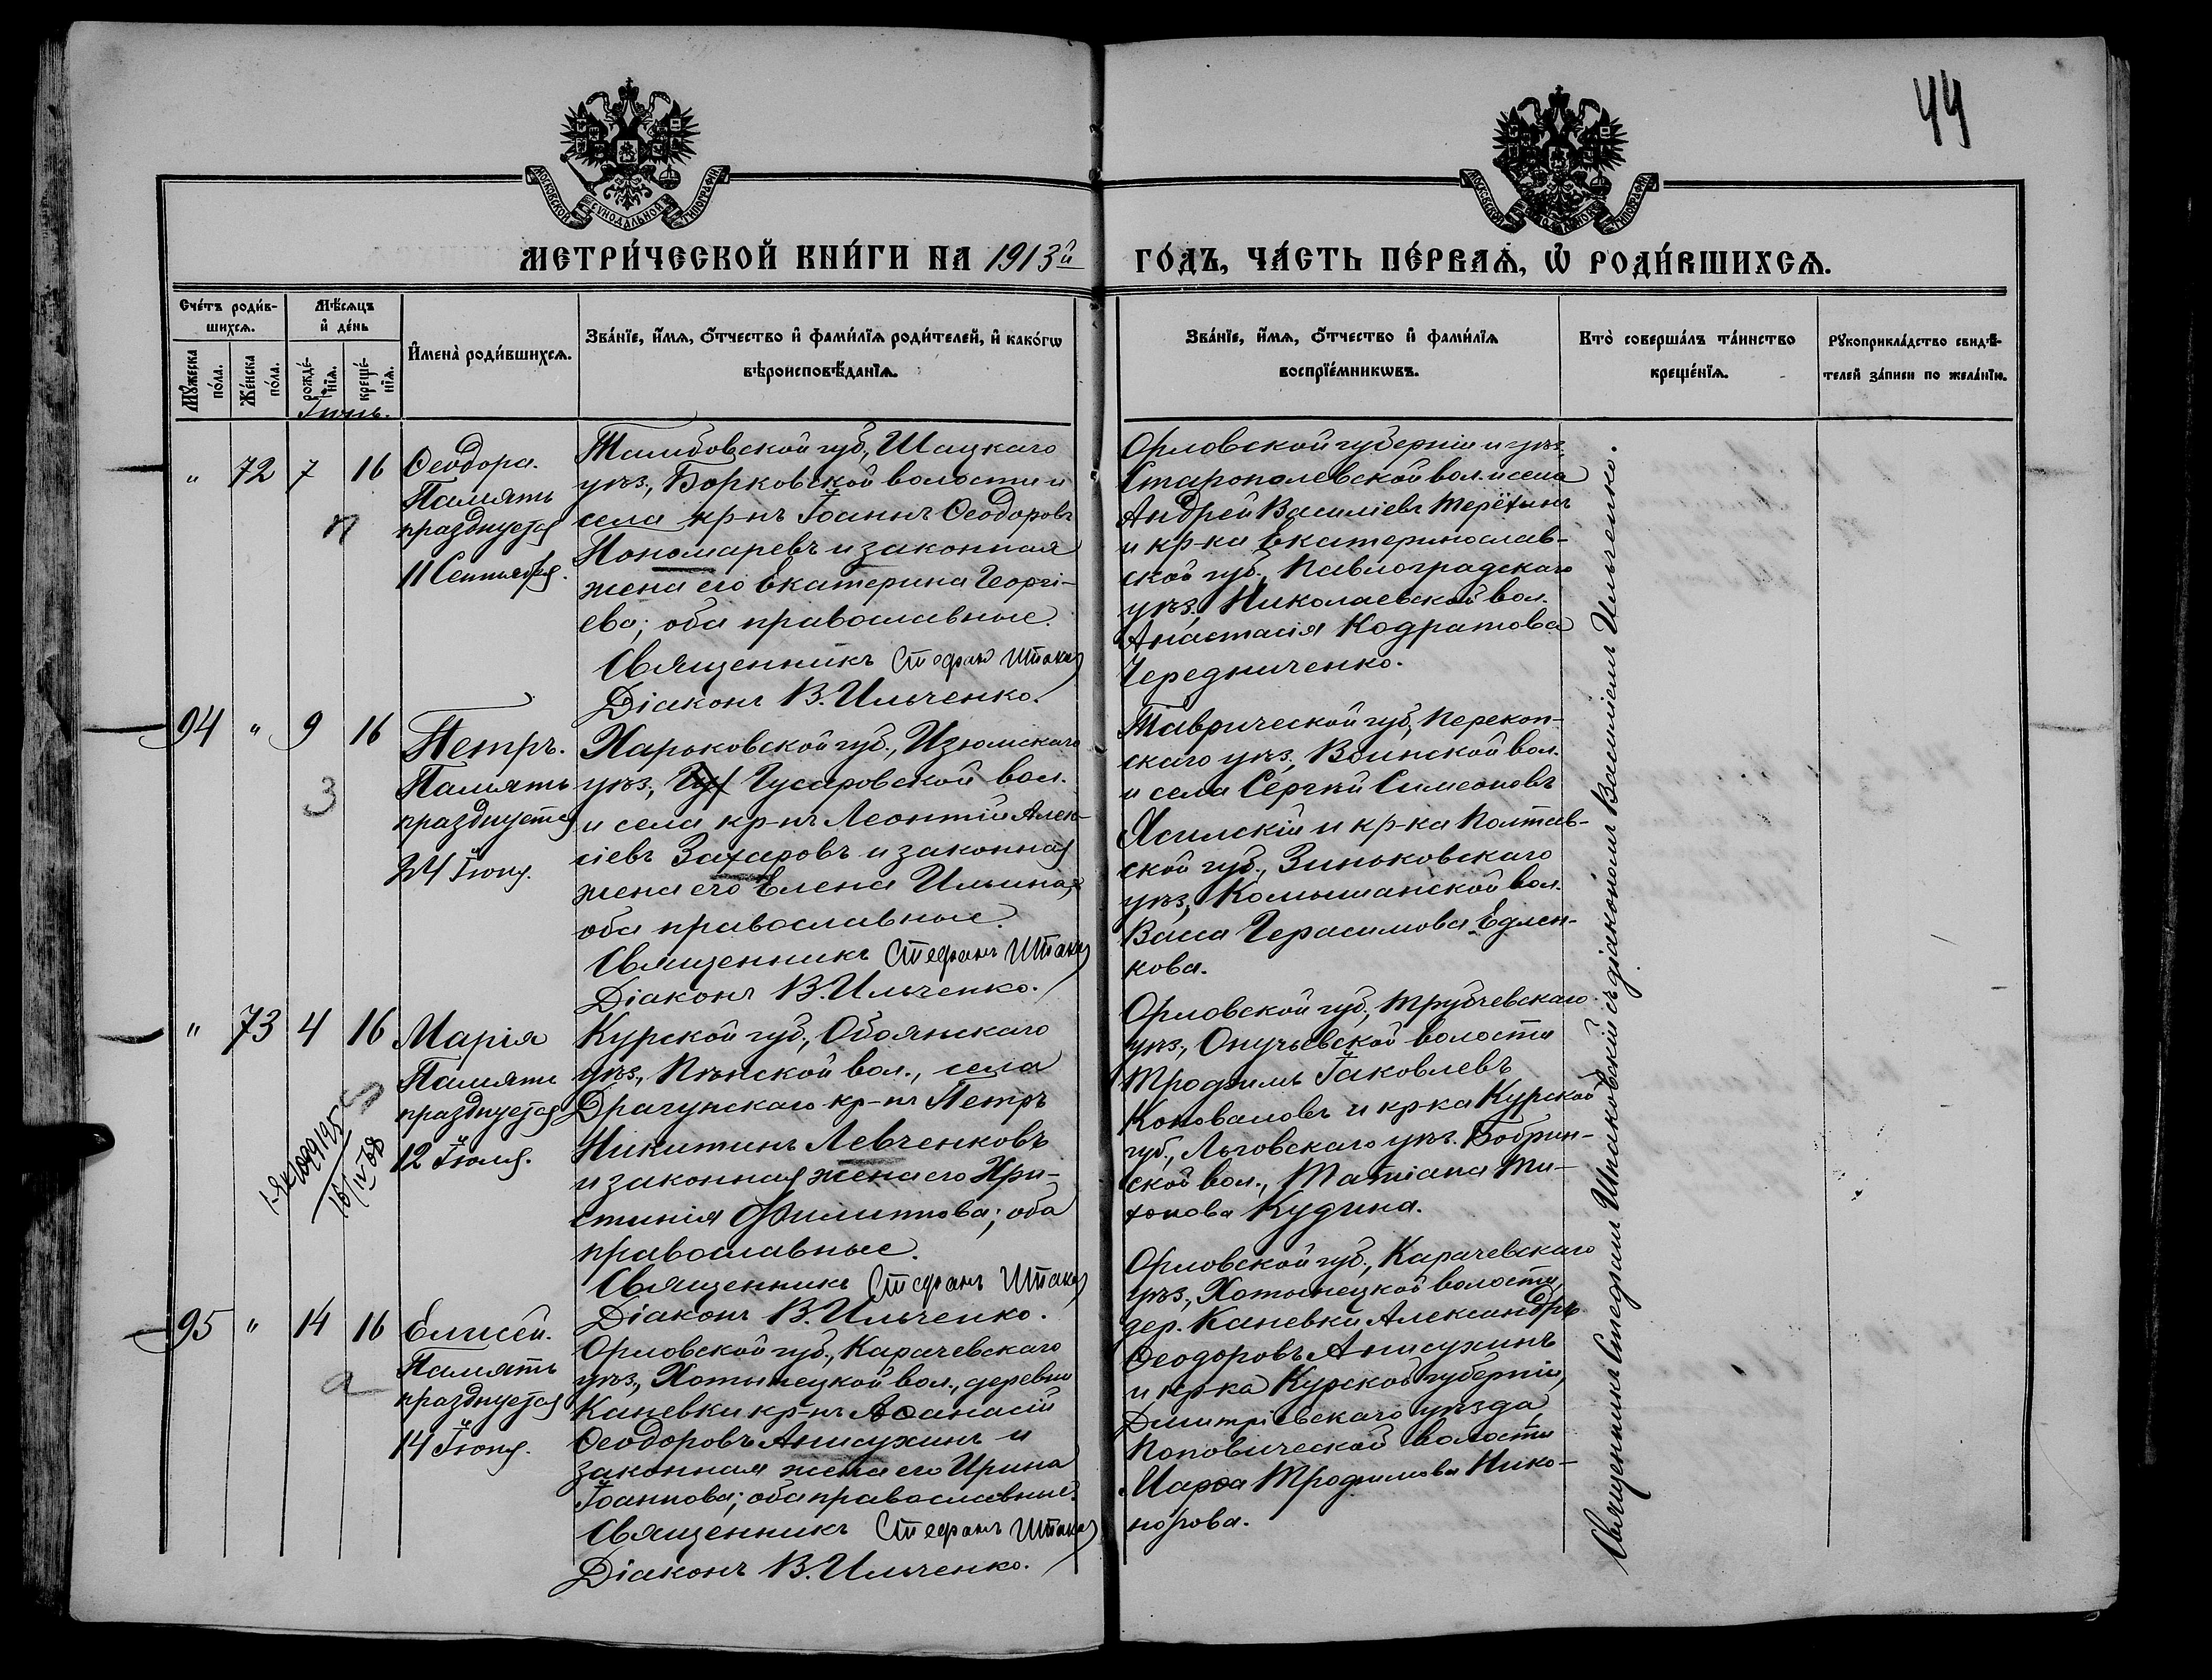 44
МОСКОВСКОЙ СѴНОДАЛЬНОЙ ТИПОГРАФІИ
МОСКОВСКОЙ СѴНОДАЛЬНОЙ ТИПОГРАФІИ
МЕТРИ́ЧЕСКОЙ КНИ́ГИ НА 1913й
ГО́ДЪ, ЧА́СТЬ ПЕ́РВАѦ, Ѡ҆ РОДИ́ВШИХСѦ.
Сче́тъ роди́в-
шихсѧ.
Мѣ́сѧцъ
и҆ де́нь
Мꙋ́жеска
по́ла.
Же́нска
по́ла.
рожде́-
нїѧ.
креще́-
нїѧ.
И҆мена̀ роди́вшихсѧ.
Зва́нїе, и҆́мѧ, ѻ҆́тчество и҆ фами́лїѧ роди́телей, и҆ како́гѡ
вѣроисповѣ́данїѧ.
Зва́нїе, и҆́мѧ, ѻ҆́тчество и҆ фами́лїѧ
воспрїе́мникѡвъ.
Кто̀ соверша́лъ та́инство
креще́нїѧ.
Рꙋкоприкла́дство свидѣ́-
телей за́писи по жела́нїю.
Іюнь.
" 72 7 16
Ѳеодора.
Память
празднуется
11 Сентября.
п
Тамбовской губ., Шацкаго
уѣз., Борковской волости и
села кр-нъ Іоаннъ Ѳеодоровъ
Пономаревъ и законная
жена его Екатерина Георгі-
ева; оба православные.
Священникъ Стефанъ
Діаконъ В. Ильченко.
Орловской губерніи и уѣз.
Старополевской вол. и села
Андрей Василіевъ Терёхинъ
и кр-ка Екатеринослав-
ской губ., Павлоградскаго
уѣз., Николаевской вол.
Анастасія Кодратова
Чередниченко.
94 " 9 16
Петръ.
Память
празднуется
24 Іюня.
З
Харьковской губ., Изюмскаго
уѣз., Гусаровской вол.
и села кр-нъ Леонтій Алек-
сіевъ Захаровъ и законная
жена его Елена Ильина,
оба православные.
Священникъ Стефанъ
Діаконъ В. Ильченко.
Таврической губ., Перекоп-
скаго уѣз., Воинской вол.
и села Сергѣй Симеоновъ
Ясилскій и кр-ка Полтав-
ской губ., Зиньковскаго
уѣз., Комышанской вол.
Васса Герасимова Едлен-
кова.
" 73 4 16
Марія
Память
празднуется
12 Іюля.
16/IV 68
Курской губ., Обоянскаго
уѣз., Пѣнской вол., села
Драгунскаго кр-нъ Петръ
Никитинъ Левченковъ
и законная жена его Хри-
стинія Филиппова; оба
православные.
Священникъ Стефанъ
Діаконъ В. Ильченко.
Орловской губ., Трубчевскаго
уѣз., Онучьевской волости
Трофимъ Іаковлевъ
Коноваловъ и кр-ка Курской
губ., Льговскаго уѣз. Бобрин-
ской вол., Татіана Ти-
хонова Кудина.
95 " 14 16
Елисей.
Память
празднуется
14 Іюня.
а
Орловской губ., Карачевскаго
уѣз., Хотынецкой вол., деревни
Каневки кр-нъ Аѳанасій
Ѳеодоровъ Анисухинъ и
законная жена его Ирина
Іоаннова; оба православные.
Священникъ Стефанъ
Діаконъ В. Ильченко.
Орловской губ., Карачевскаго
уѣз., Хотынецкой волости,
дер. Каневки Александръ
Ѳеодоровъ Анисухинъ
и кр-ка Курской губерніи,
Дмитріевскаго уѣзда,
Поповической волости
Марѳа Трофимова Нико-
норова.
Священникъ Стефанъ Шпаковскій съ діакономъ Василіемъ Ильченко.